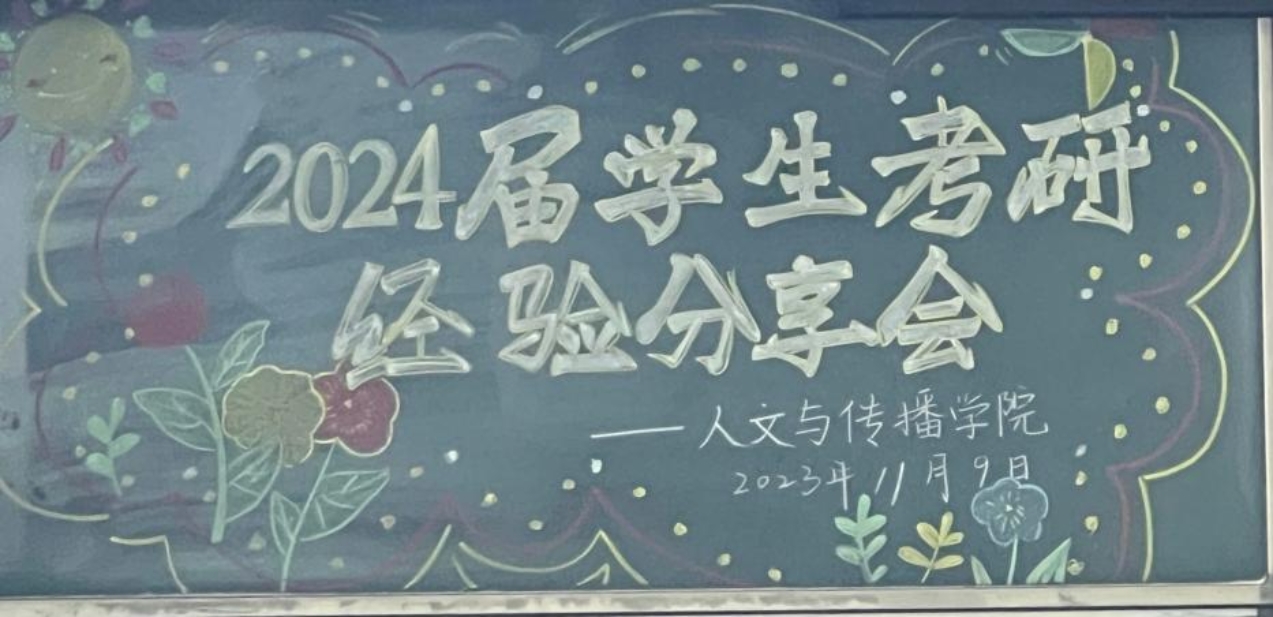 2024届学生考研
经验分享会
——人文与传播学院
2023年11月9日